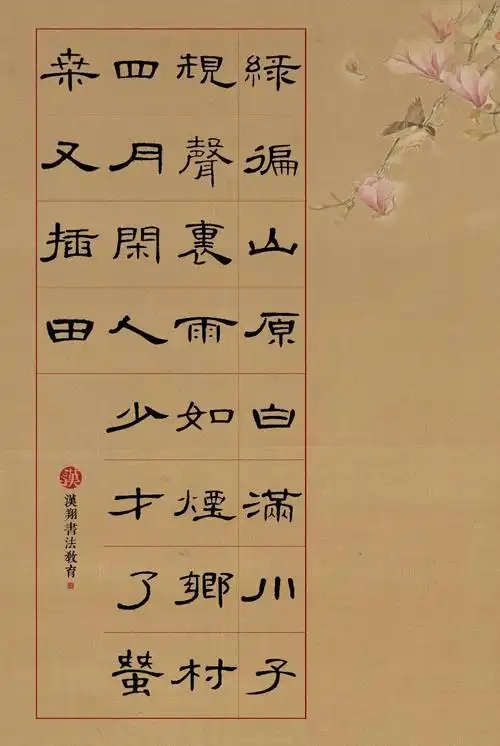 綠徧山原白滿川子
規聲裏雨如煙鄉村
四月閑人少才了蠶
桒又插田
漢
漢翔書法教育